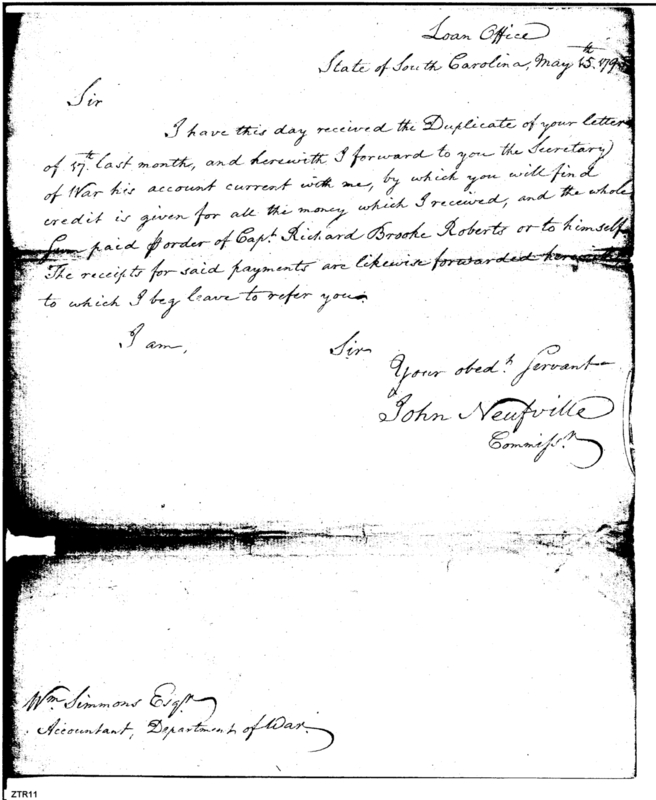 Loan Office
State of South Carolina, May 15th. 179
Sir
I have this day received the Duplicate of your letter
of 17th. last month, and herewith I forward to you the Secretary
of War his account current with me, by which you will find
credit is given for all the money which I received, and the whole
Sum paid ⅌ order of Capt. Richard Brooke Roberts or to himself
The receipts for said payments are likewise forwarded
to which I beg leave to refer you.
I am, Sir
Your obedt. Servant
John Neufville
Commissr.
Wm. Simmons Esqr.
Accountant, Department of War.
ZTR11